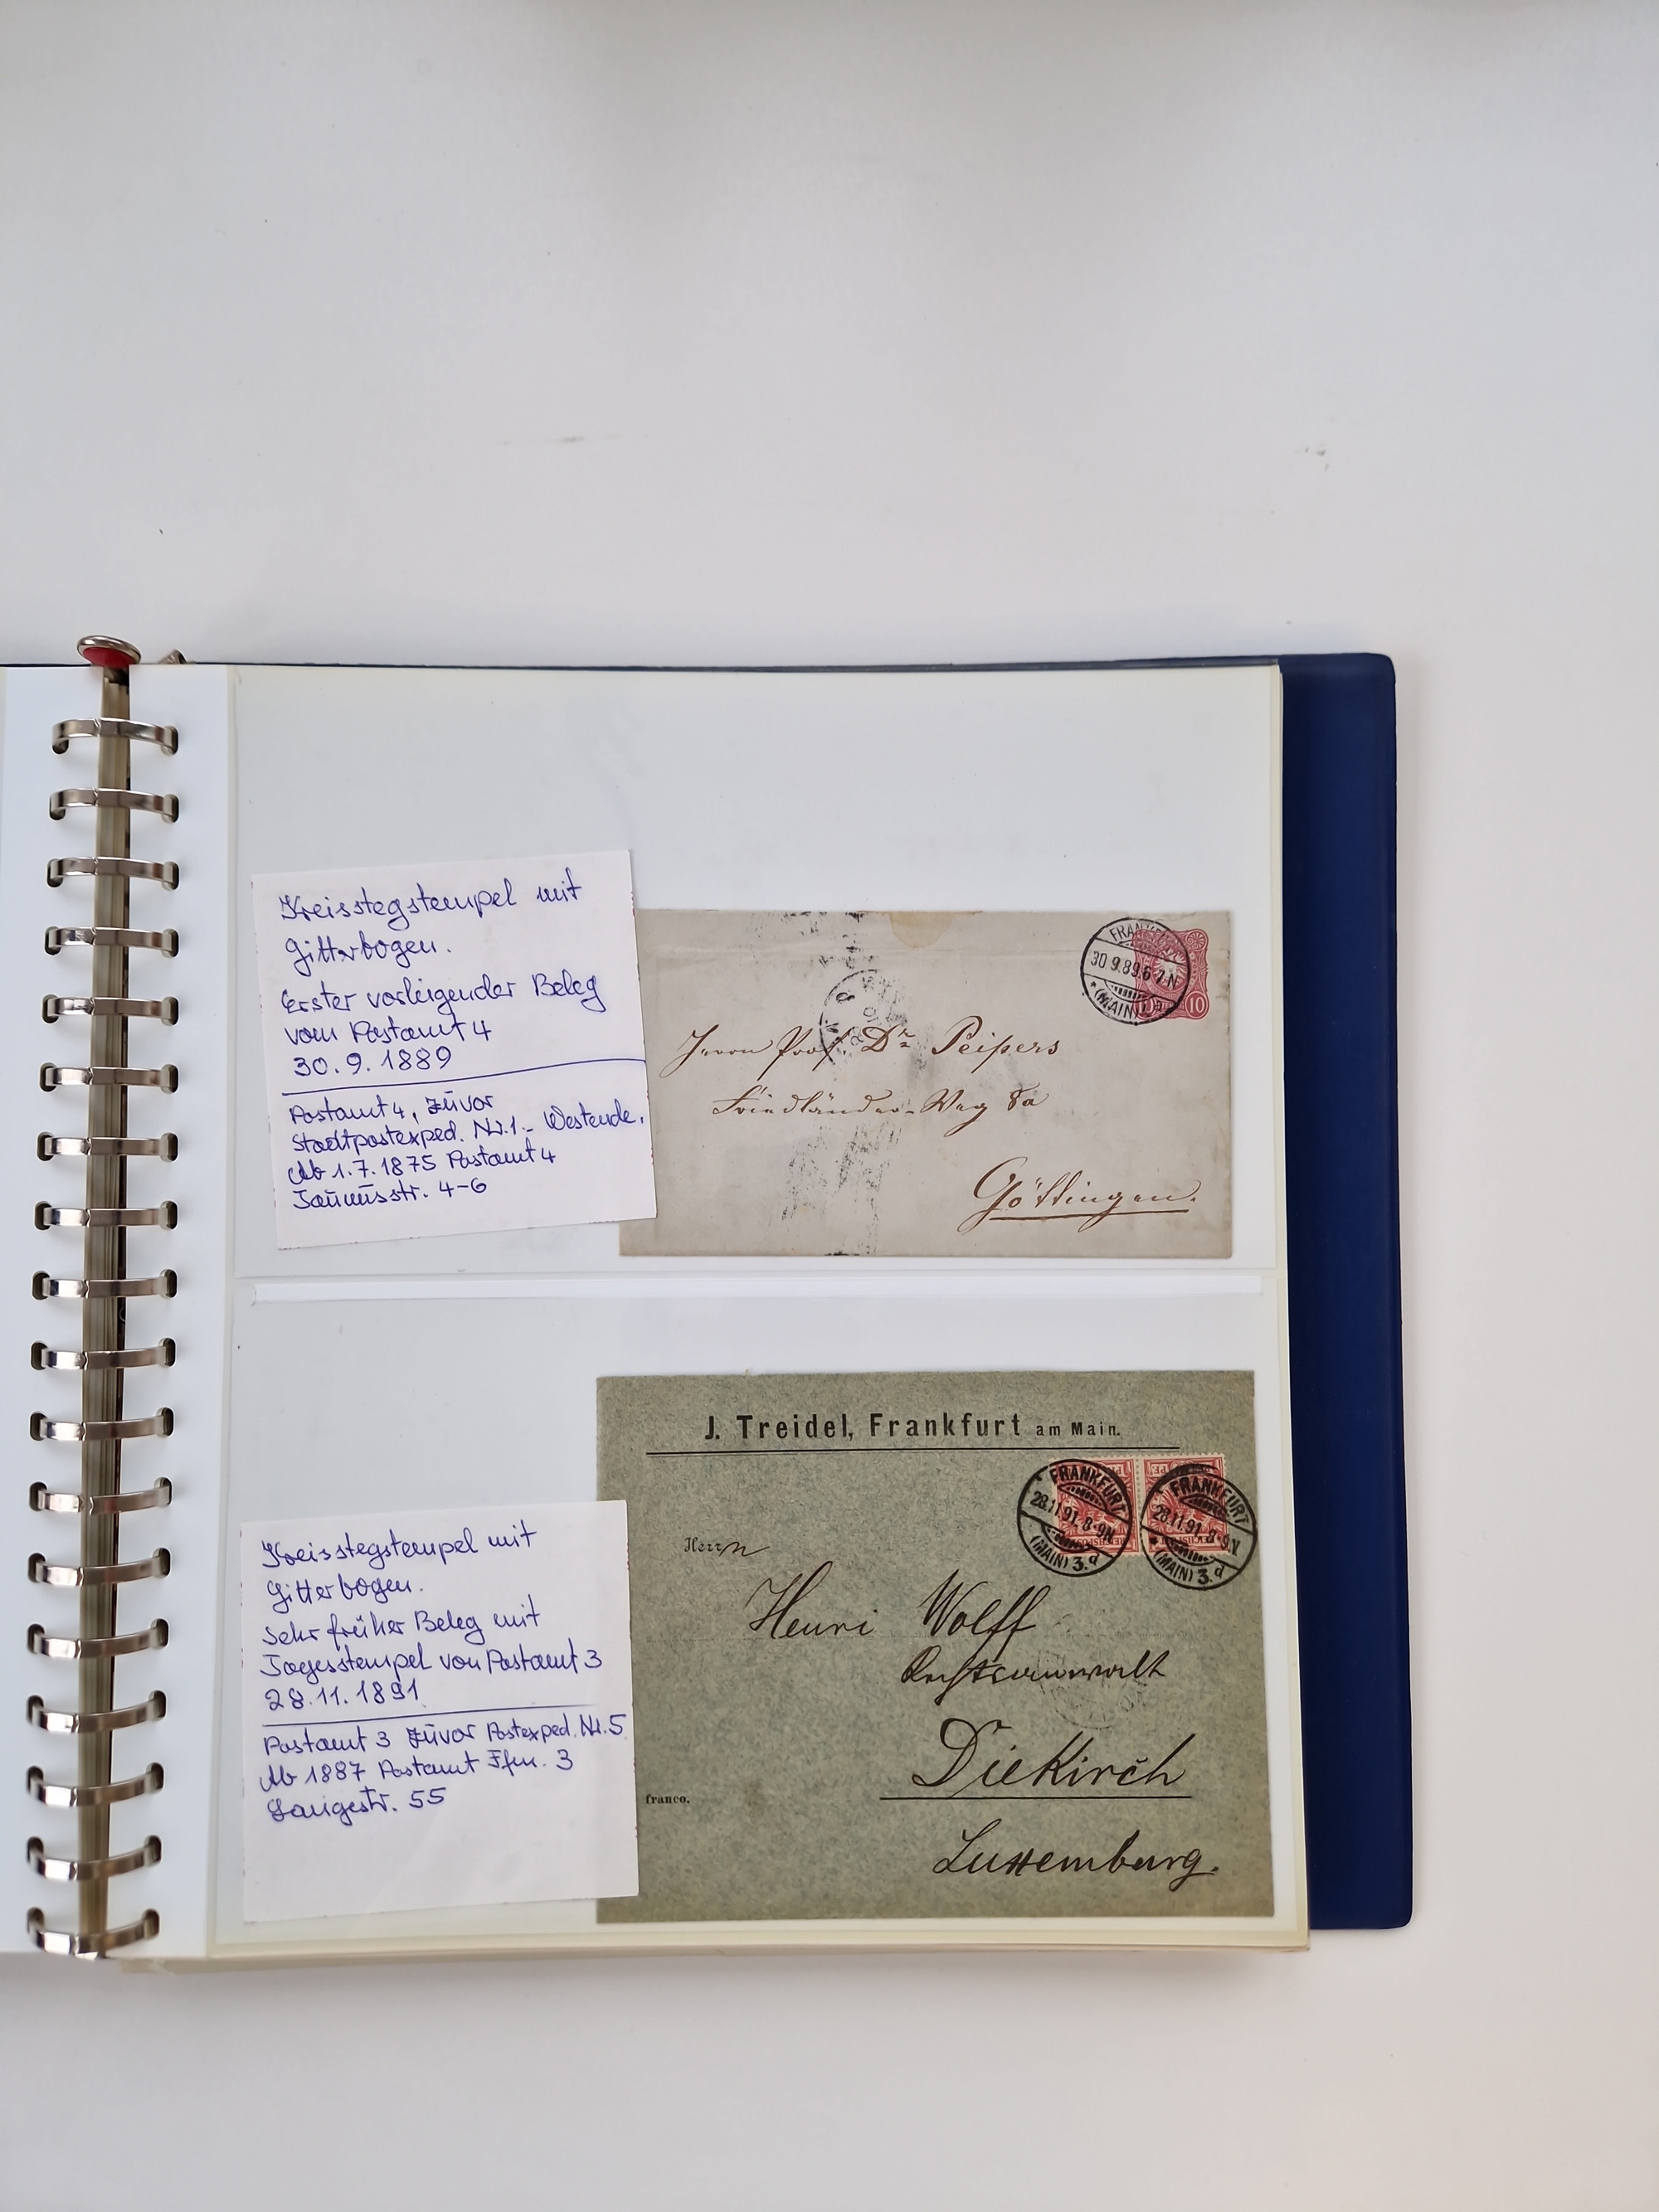 Kreisstegstempel mit
Gitterbogen.
Erster vorliegender Beleg
vom Postamt 4
30.9.1889
Postamt 4, zuvor
Stadtpostexped. Nr.1 - Westende.
Ab 1.7.1875 Postamt 4
Taunusstr. 4-6
FRANKF
30.9.89.6-7.N
(MAIN)
10
Herrn Prof. Dr. Peipers
Friedländer-Weg 8a
Göttingen.
J. Treidel, Frankfurt am Main.
FRANKFURT
28.11.91.8-9N
(MAIN) 3.d
FRANKFURT
28.11.91.8-9N
(MAIN) 3.d
Herrn
Henri Wolff
Rechtsanwalt
Diekirch
franco.
Luxemburg.
Kreisstegstempel mit
Gitterbogen.
Sehr früher Beleg mit
Tagesstempel von Postamt 3
28.11.1891
Postamt 3 zuvor Postexped. Nr.5
Ab 1887 Postamt Ffm. 3
Langestr. 55